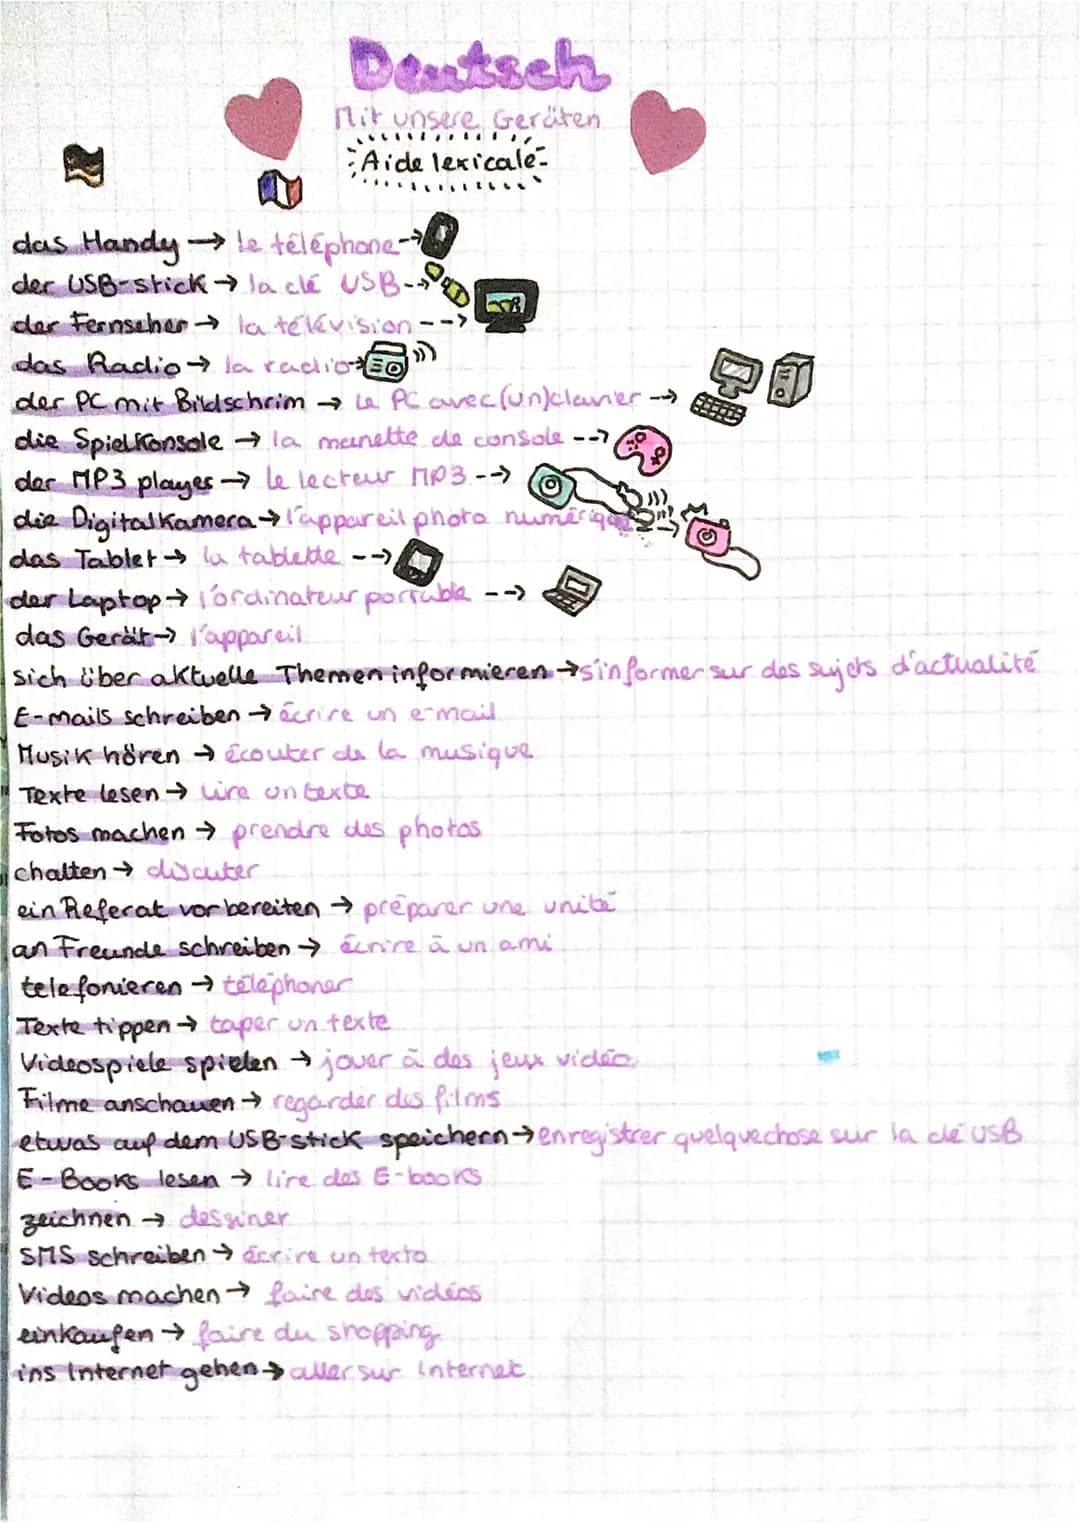 Deutsch
Mit unsere Geräten
Aide lexicale
das Handy → le téléphone
der USB-stick → la clé USB
der Fernseher → la télévision
das Radio → la radio
der PC mit Bildschrim → Le PC avec (un) clavier
die Spielkonsole → la manette de console
der MP3 player → le lecteur MP3
die Digitalkamera → l'appareil photo numérique
das Tablet → la tablette
der Laptop → l'ordinateur portable
das Gerät → l'appareil
sich über aktuelle Themen informieren → s'informer sur des sujets d'actualité
E-mails schreiben → écrire un e-mail
Musik hören → écouter de la musique
Texte lesen → Lire un texte
Fotos machen → prendre des photos
chatten → discuter
ein Referat vorbereiten → préparer une unité
an Freunde schreiben → écrire à un ami
telefonieren → téléphoner
Texte tippen → taper un texte
Videospiele spielen → jouer à des jeux vidéo
Filme anschauen → regarder des films
etwas auf dem USB-stick speichern → enregistrer quelque chose sur la clé USB
E-Books lesen → lire des E-books
zeichnen → dessiner
SMS schreiben → écrire un texto
Videos machen → faire des vidéos
einkaufen → faire du shopping
ins Internet gehen → aller sur Internet